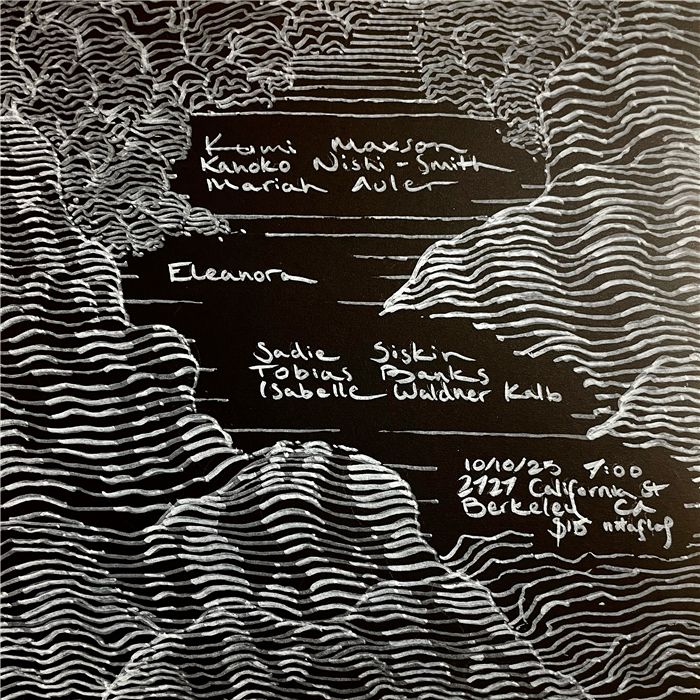 Kumi Maxson
Kanoko Nishi-Smith
Mariah Auler
Eleanora
Sadie Siskin
Tobias Banks
Isabelle Waldner Kalb
10/10/25 7:00
2121 California St
Berkeley CA
$15 notaflof